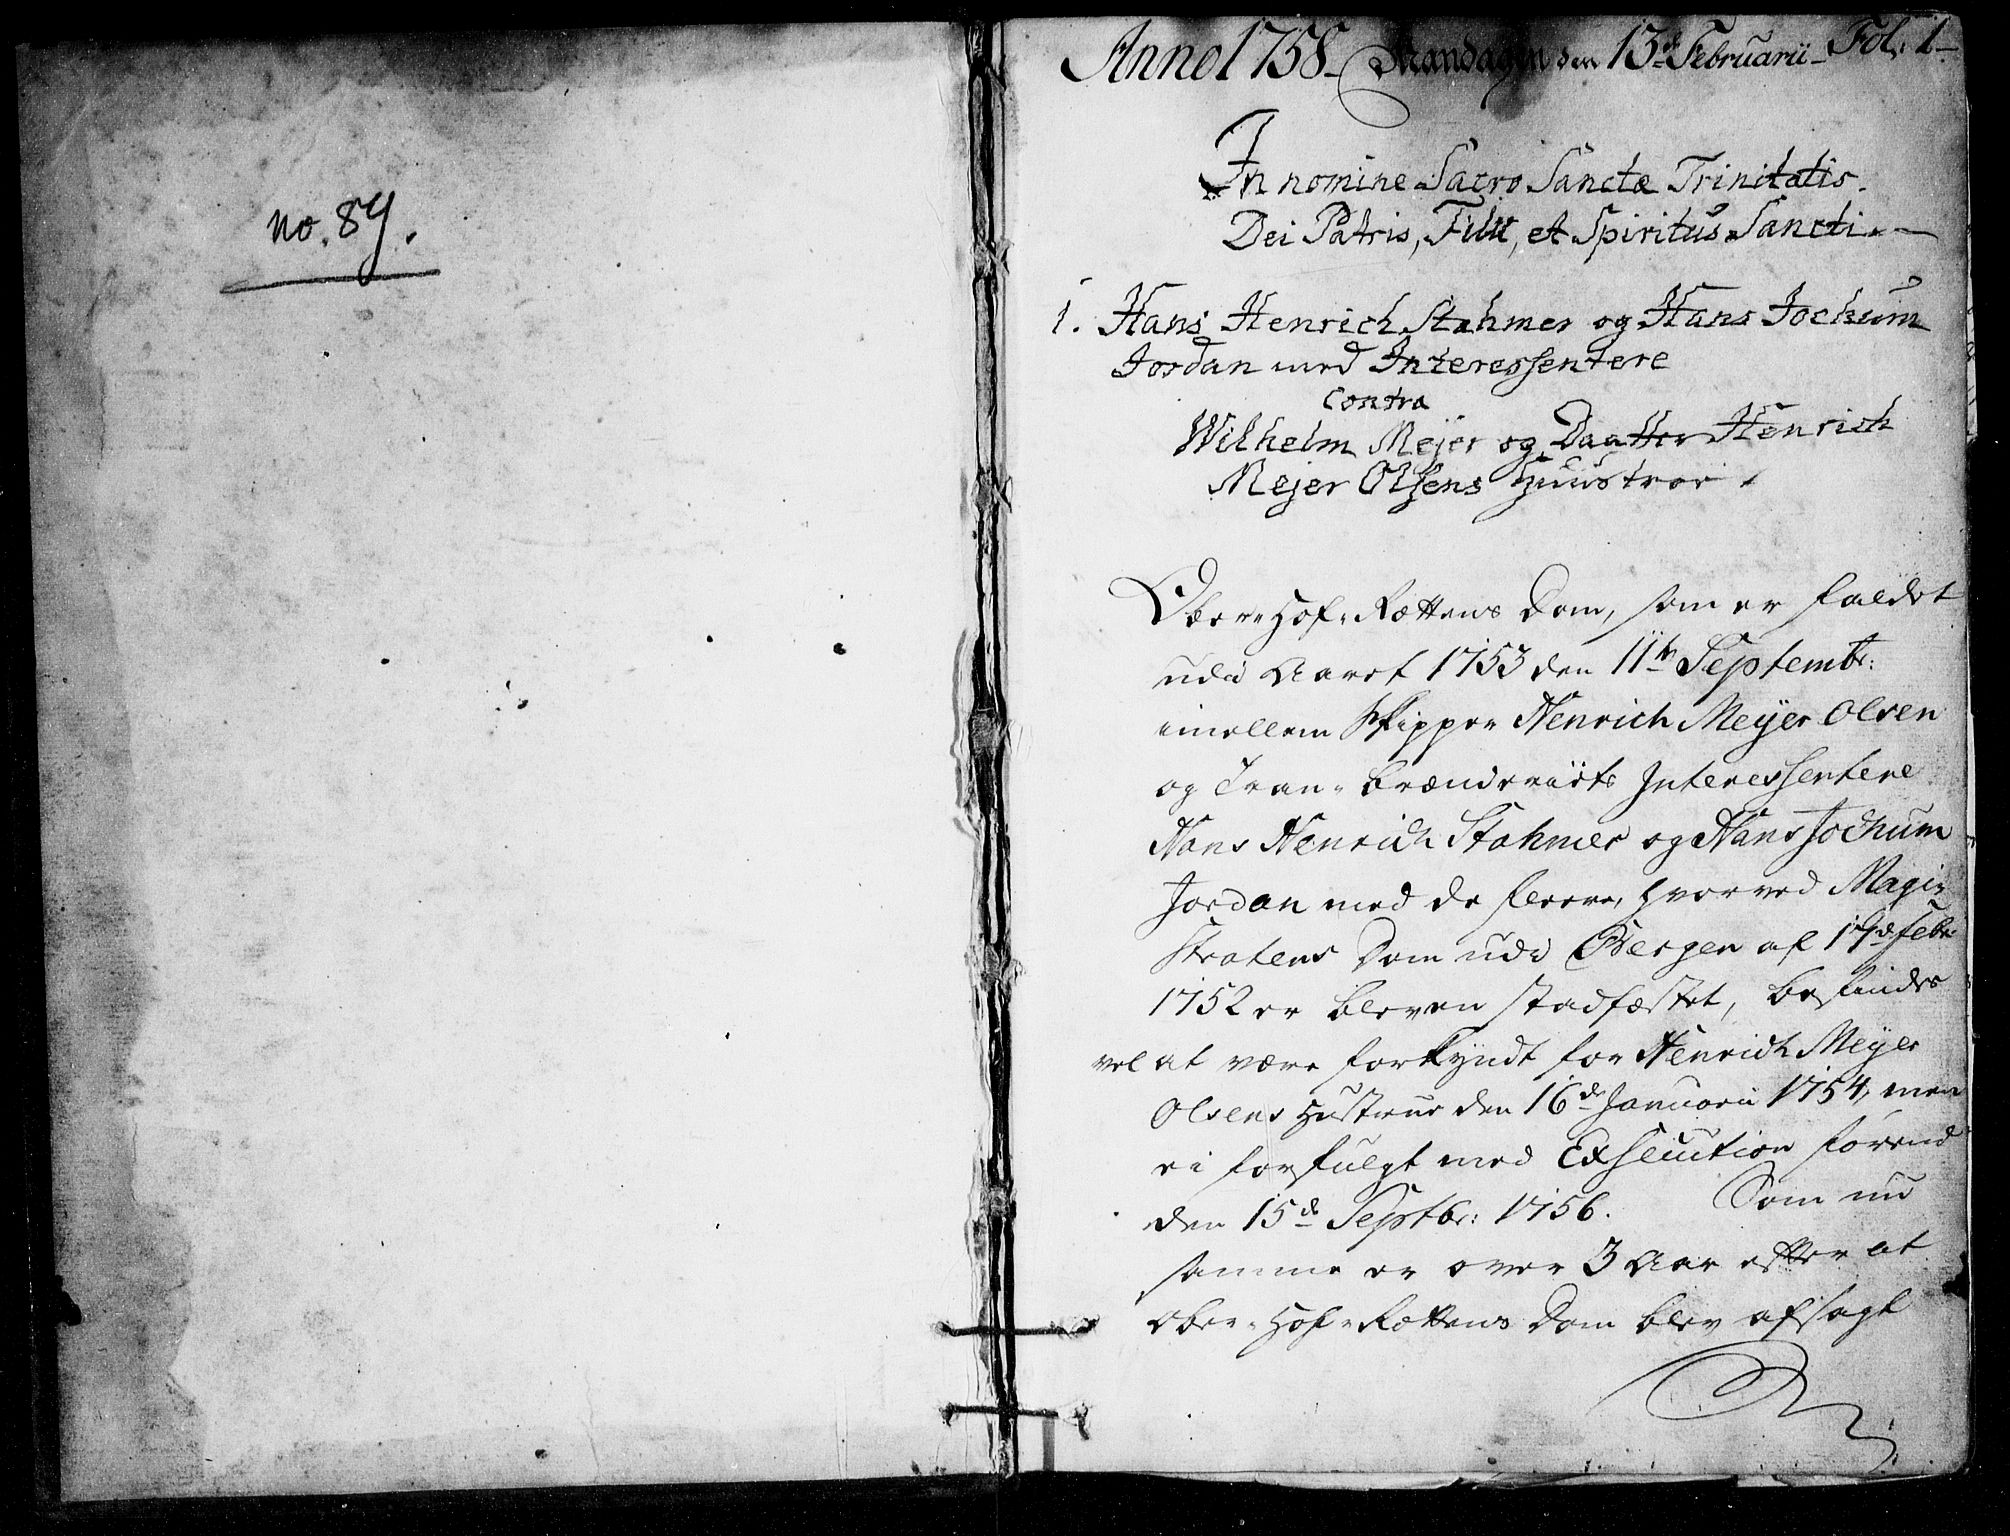 no. 87.
Anno 1758 Mandagen den 13de Februarii Fol: 1
In nomine Sacro Sanctæ Trinitatis
Dei Patris, Filii, et Spiritus Sancti
1. Hans Henrich Stahmer og Hans Jochum
Jordan med Interessentere
Contra
Wilhelm Mejer og Daatter Henrich
Mejer Olsens Huustroe
Ober-Hof-Rættens Dom, som er faldet
udi Aaret 1753 den 11te Septembr:
imellem Skipper Henrich Meÿer Olsen
og Tran-brænderiets Interessentere
Hans Henrich Stahmer og Hans Jochum
Jordan med de fleere, hvorved Magi-
stratens Dom udi Bergen af 17de Febr:
1752 er bleven stadfæstet, befindes
vel at være forkÿndt for Henrich Meÿer
Olsens Hustrue den 16de Januarii 1754, men
ei forfulgt med Execution förend
den 15de Septbr: 1756. Som nu
samme er over 3 Aar efter at
Ober-Hof-Rættens Dom blev afsagt